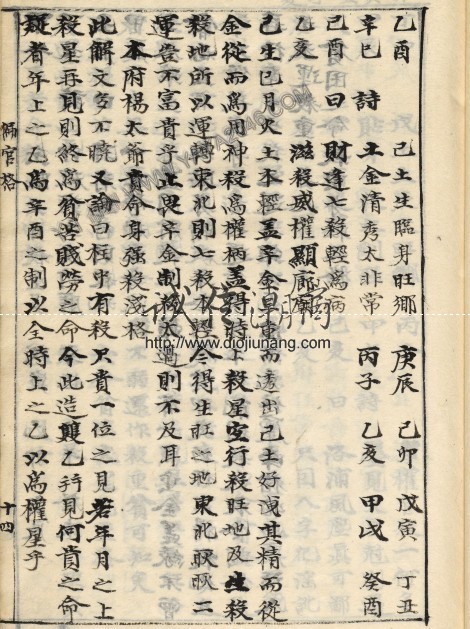 乙酉　己土生臨身旺鄉　庚辰　己卯　戊寅　丁丑
辛巳　詩　土金清秀太非常　丙子　乙亥　甲戌　癸酉
己酉　曰　財逢七殺輕爲病
乙亥　滋殺威權顯廊廟
己生巳月火土不輕蓋辛金而透出己土好洩其精而從
金從而爲用神殺爲權柄蓋得時上殺星宜行殺旺地及生殺
殺地所以運轉東北則七殺本輕今得生旺之地東北二
運豈不富貴乎止畏辛金制殺太過則不及耳
本府楊太爺貴命身强殺淺格
此解文多不曉又論曰柱中有殺只貴一位之見若年月之上
殺星再見則終爲貧苦賤勞之命今此造雙乙並見何貴之命
疑者年上之乙爲辛酉之制以全時上之乙以爲權星乎
偏官格
十四
http://www.diojiunang.com